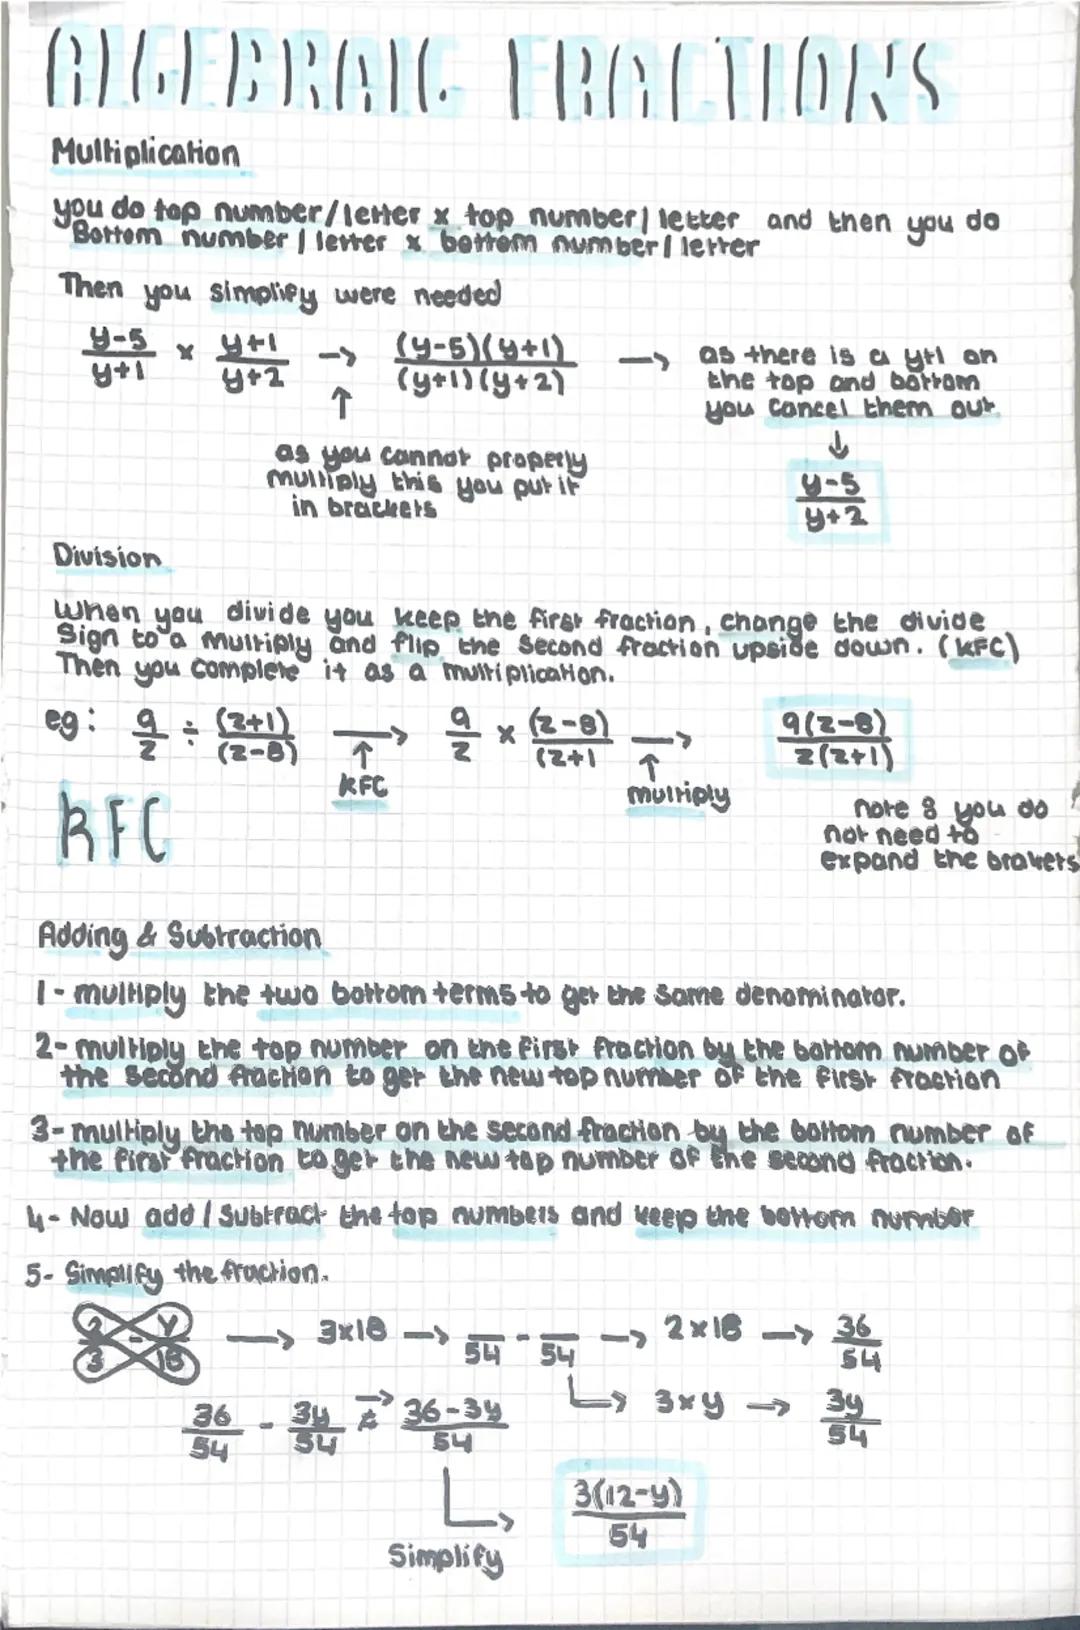 ALGEBRAIC FRACTIONS
Multiplication
you do top number/letter x top number/letter and then you do
Bottom number/letter x bottom number/letter
Then you simplify were needed
y-5/y+1 × y+1/y+2 → (y-5)(y+1)/(y+1)(y+2) → as there is a y+1 on
the top and bottom
you cancel them out
↑
↓
as you cannot properly
multiply this you put it
in brackets
y-5/y+2
Division
When you divide you keep the first fraction, change the divide
Sign to a multiply and flip the second fraction upside down. (KFC)
Then you complete it as a multiplication.
eg: 9/z ÷ (z+1)/(z-8) → 9/z × (z-8)/(z+1 → 9(z-8)/z(z+1)
↑ KFC
↑ multiply
KFC
note: you do
not need to
expand the brakets
Adding & Subtraction
1- multiply the two bottom terms to get the same denominator.
2- multiply the top number on the first fraction by the bottom number of
the second fraction to get the new top number of the first fraction
3- multiply the top number on the second fraction by the bottom number of
the first fraction to get the new top number of the second fraction.
4- Now add / Subtract the top numbers and keep the bottom number
5- Simplify the fraction.
2/3 - y/18 → 3x18 → /54 - /54 → 2x18 → 36/54
↳ 3xy → 3y/54
36/54 - 3y/54 → 36-3y/54
↳ 3(12-y)/54
Simplify